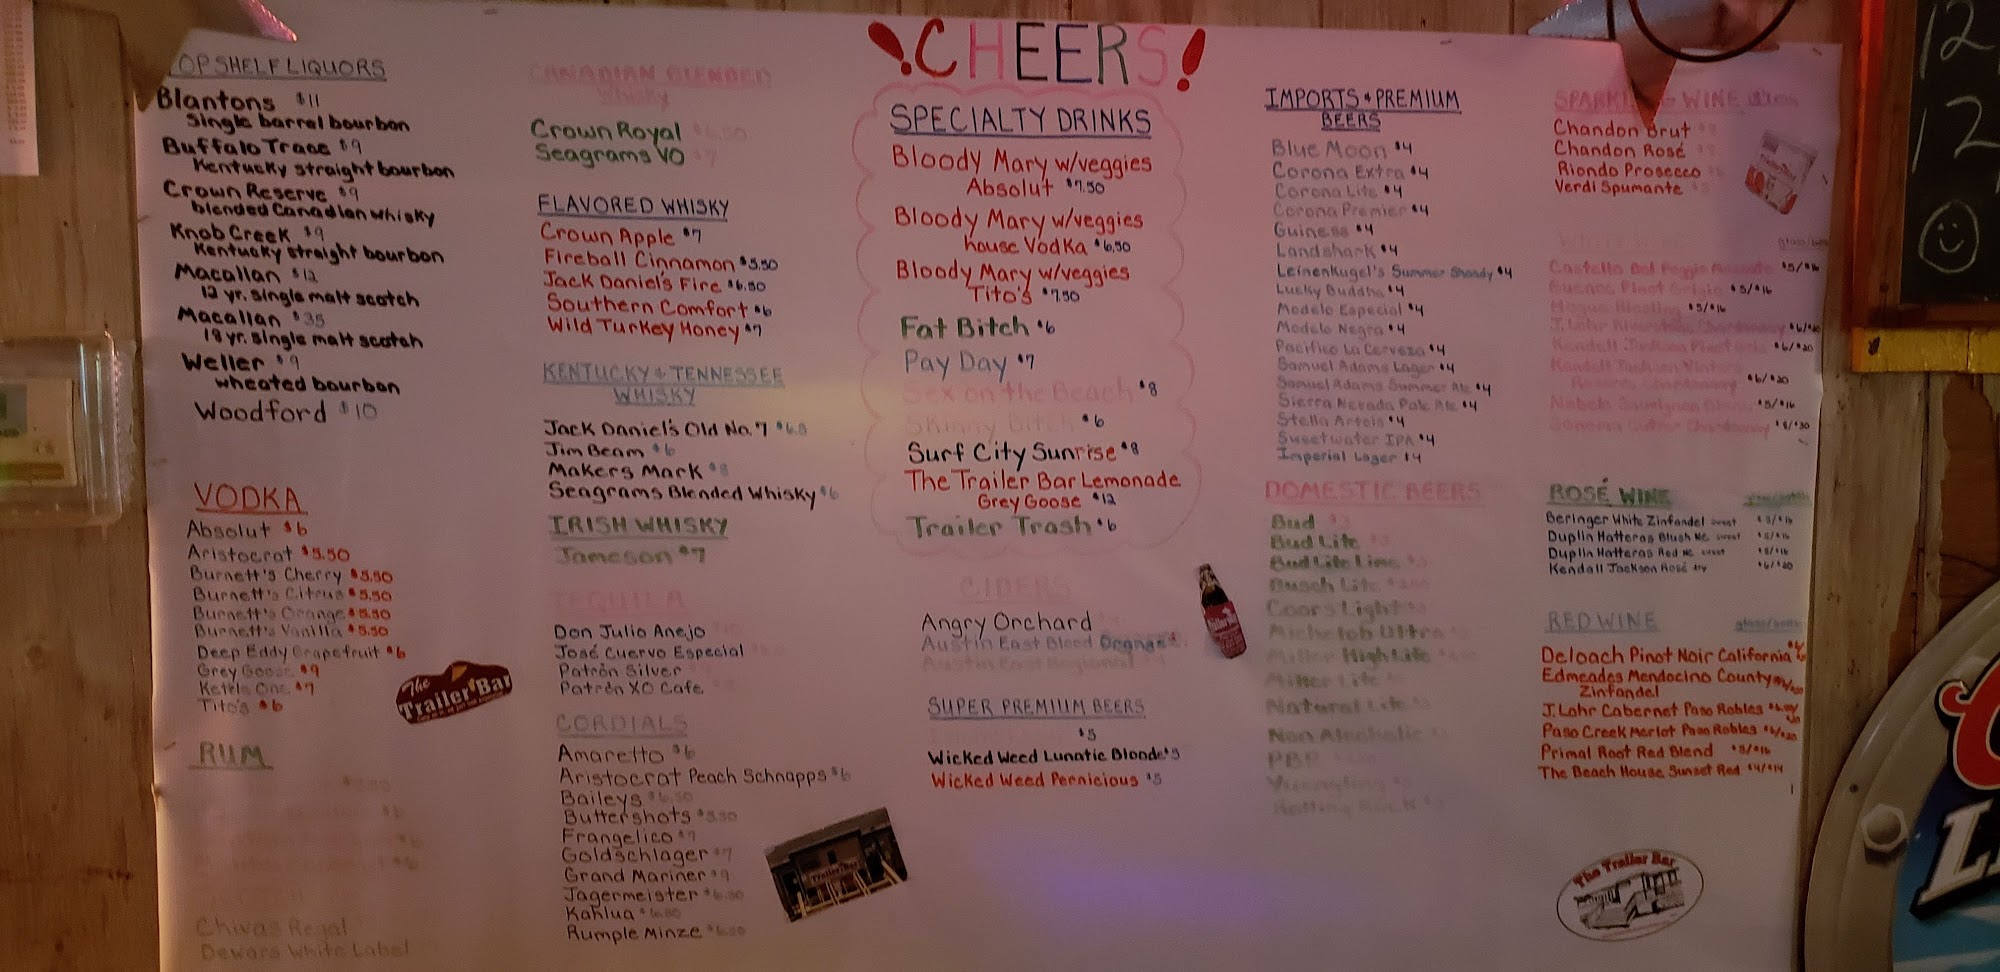 !CHEERS!
OP SHELF LIQUORS
Blantons $11
Single barrel bourbon
Buffalo Trace $9
Kentucky straight bourbon
Crown Reserve $9
blended Canadian whisky
Knob Creek $9
Kentucky straight bourbon
Macallan $12
12 yr. single malt scotch
Macallan $35
18 yr. single malt scotch
Weller $9
wheated bourbon
Woodford $10
VODKA
Absolut $6
Aristocrat $5.50
Burnett's Cherry $5.50
Burnett's Citrus $5.50
Burnett's Orange $5.50
Burnett's Vanilla $5.50
Deep Eddy Grapefruit $6
Grey Goose $9
Ketele One $7
Tito's $6
RUM
Chivas Regal
Dewars White Label
CANADIAN BLENDED
Whisky
Crown Royal $6.50
Seagrams VO $7
FLAVORED WHISKY
Crown Apple $7
Fireball Cinnamon $5.50
Jack Daniel's Fire $6.50
Southern Comfort $6
Wild Turkey Honey $7
KENTUCKY & TENNESSEE
WHISKY
Jack Daniel's Old No. 7
Jim Beam $6
Makers Mark $8
Seagrams Blended Whisky $6
IRISH WHISKY
Jameson $7
TEQUILA
Don Julio Anejo
José Cuervo Especial
Patrón Silver
Patrón XO Cafe
CORDIALS
Amaretto $6
Aristocrat Peach Schnapps $6
Baileys $6.50
Buttershots $5.50
Frangelico $7
Goldschlager $7
Grand Mariner $9
Jagermeister $6.50
Kahlua $6.50
Rumple Minze $6.50
The
Trailer Bar
SPECIALTY DRINKS
Bloody Mary w/veggies
Absolut $7.50
Bloody Mary w/veggies
house Vodka $6.50
Bloody Mary w/veggies
Tito's $7.50
Fat Bitch $6
Pay Day $7
Sex on the Beach $8
Skinny Bitch $6
Surf City Sunrise $8
The Trailer Bar Lemonade
Grey Goose $12
Trailer Trash $6
CIDERS
Angry Orchard
Austin East Blood Orange
Austin East Regional
SUPER PREMIUM BEERS
$5
Wicked Weed Lunatic Blonde $5
Wicked Weed Pernicious $5
IMPORTS & PREMIUM
BEERS
Blue Moon $4
Corona Extra $4
Corona Lite $4
Corona Premier $4
Guiness $4
Landshark $4
Leinenkugel's Summer Shandy $4
Lucky Buddha $4
Modelo Especial $4
Modelo Negra $4
Pacifico La Cerveza $4
Samuel Adams Lager $4
Samuel Adams Summer Ale $4
Sierra Nevada Pale Ale $4
Stella Artois $4
Sweetwater IPA $4
Imperial Lager $4
DOMESTIC BEERS
Bud $3
Bud Lite
Bud Lite Lime
Busch Lite
Coors Light
Michelob Ultra
Miller High Life
Miller Lite
Natural Lite
Non Alcoholic
PBR
Yuengling
Rolling Rock
SPARKLING WINE
Chandon Brut
Chandon Rosé
Riondo Prosecco
Verdi Spumante
Castello Del Poggio Moscato $5/$16
Pinot Grigio $5/$16
Hogue Riesling $5/$16
J. Lohr Riverstone Chardonnay $6/$20
Kendall Jackson Pinot Gris $6/$20
Kendall Jackson Vintners
Reserve Chardonnay $6/$20
Nobelo Sauvignon Blanc $5/$16
Sonoma Cutrer Chardonnay $8/$30
ROSÉ WINE
Beringer White Zinfandel sweet $5/$16
Duplin Hatteras Blush NC sweet $5/$16
Duplin Hatteras Red NC sweet $5/$16
Kendall Jackson Rosé dry $6/$20
RED WINE glass/bottle
Deloach Pinot Noir California
Edmeades Mendocino County
Zinfandel
J. Lohr Cabernet Paso Robles
Paso Creek Merlot Paso Robles $6/$20
Primal Root Red Blend $5/$16
The Beach House Sunset Red $4/$14
The Trailer Bar
12
12